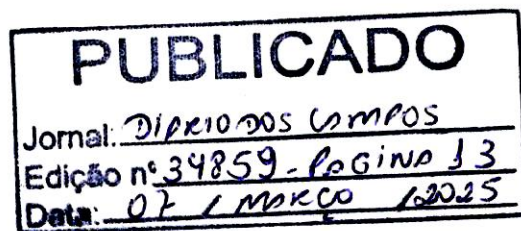 PUBLICADO
Jornal: DIÁRIO DOS CAMPOS
Edição nº 34859 - PÁGINA 13
Data: 07 / MARÇO / 2025